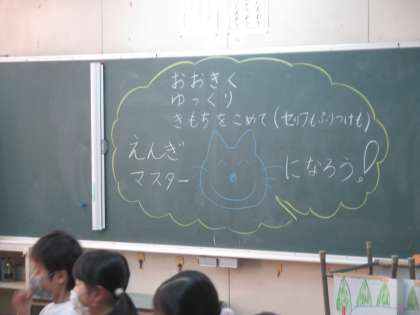 おおきく
ゆっくり
きもちをこめて(セリフもふりつけも)
えんぎ
マスター
になろう!